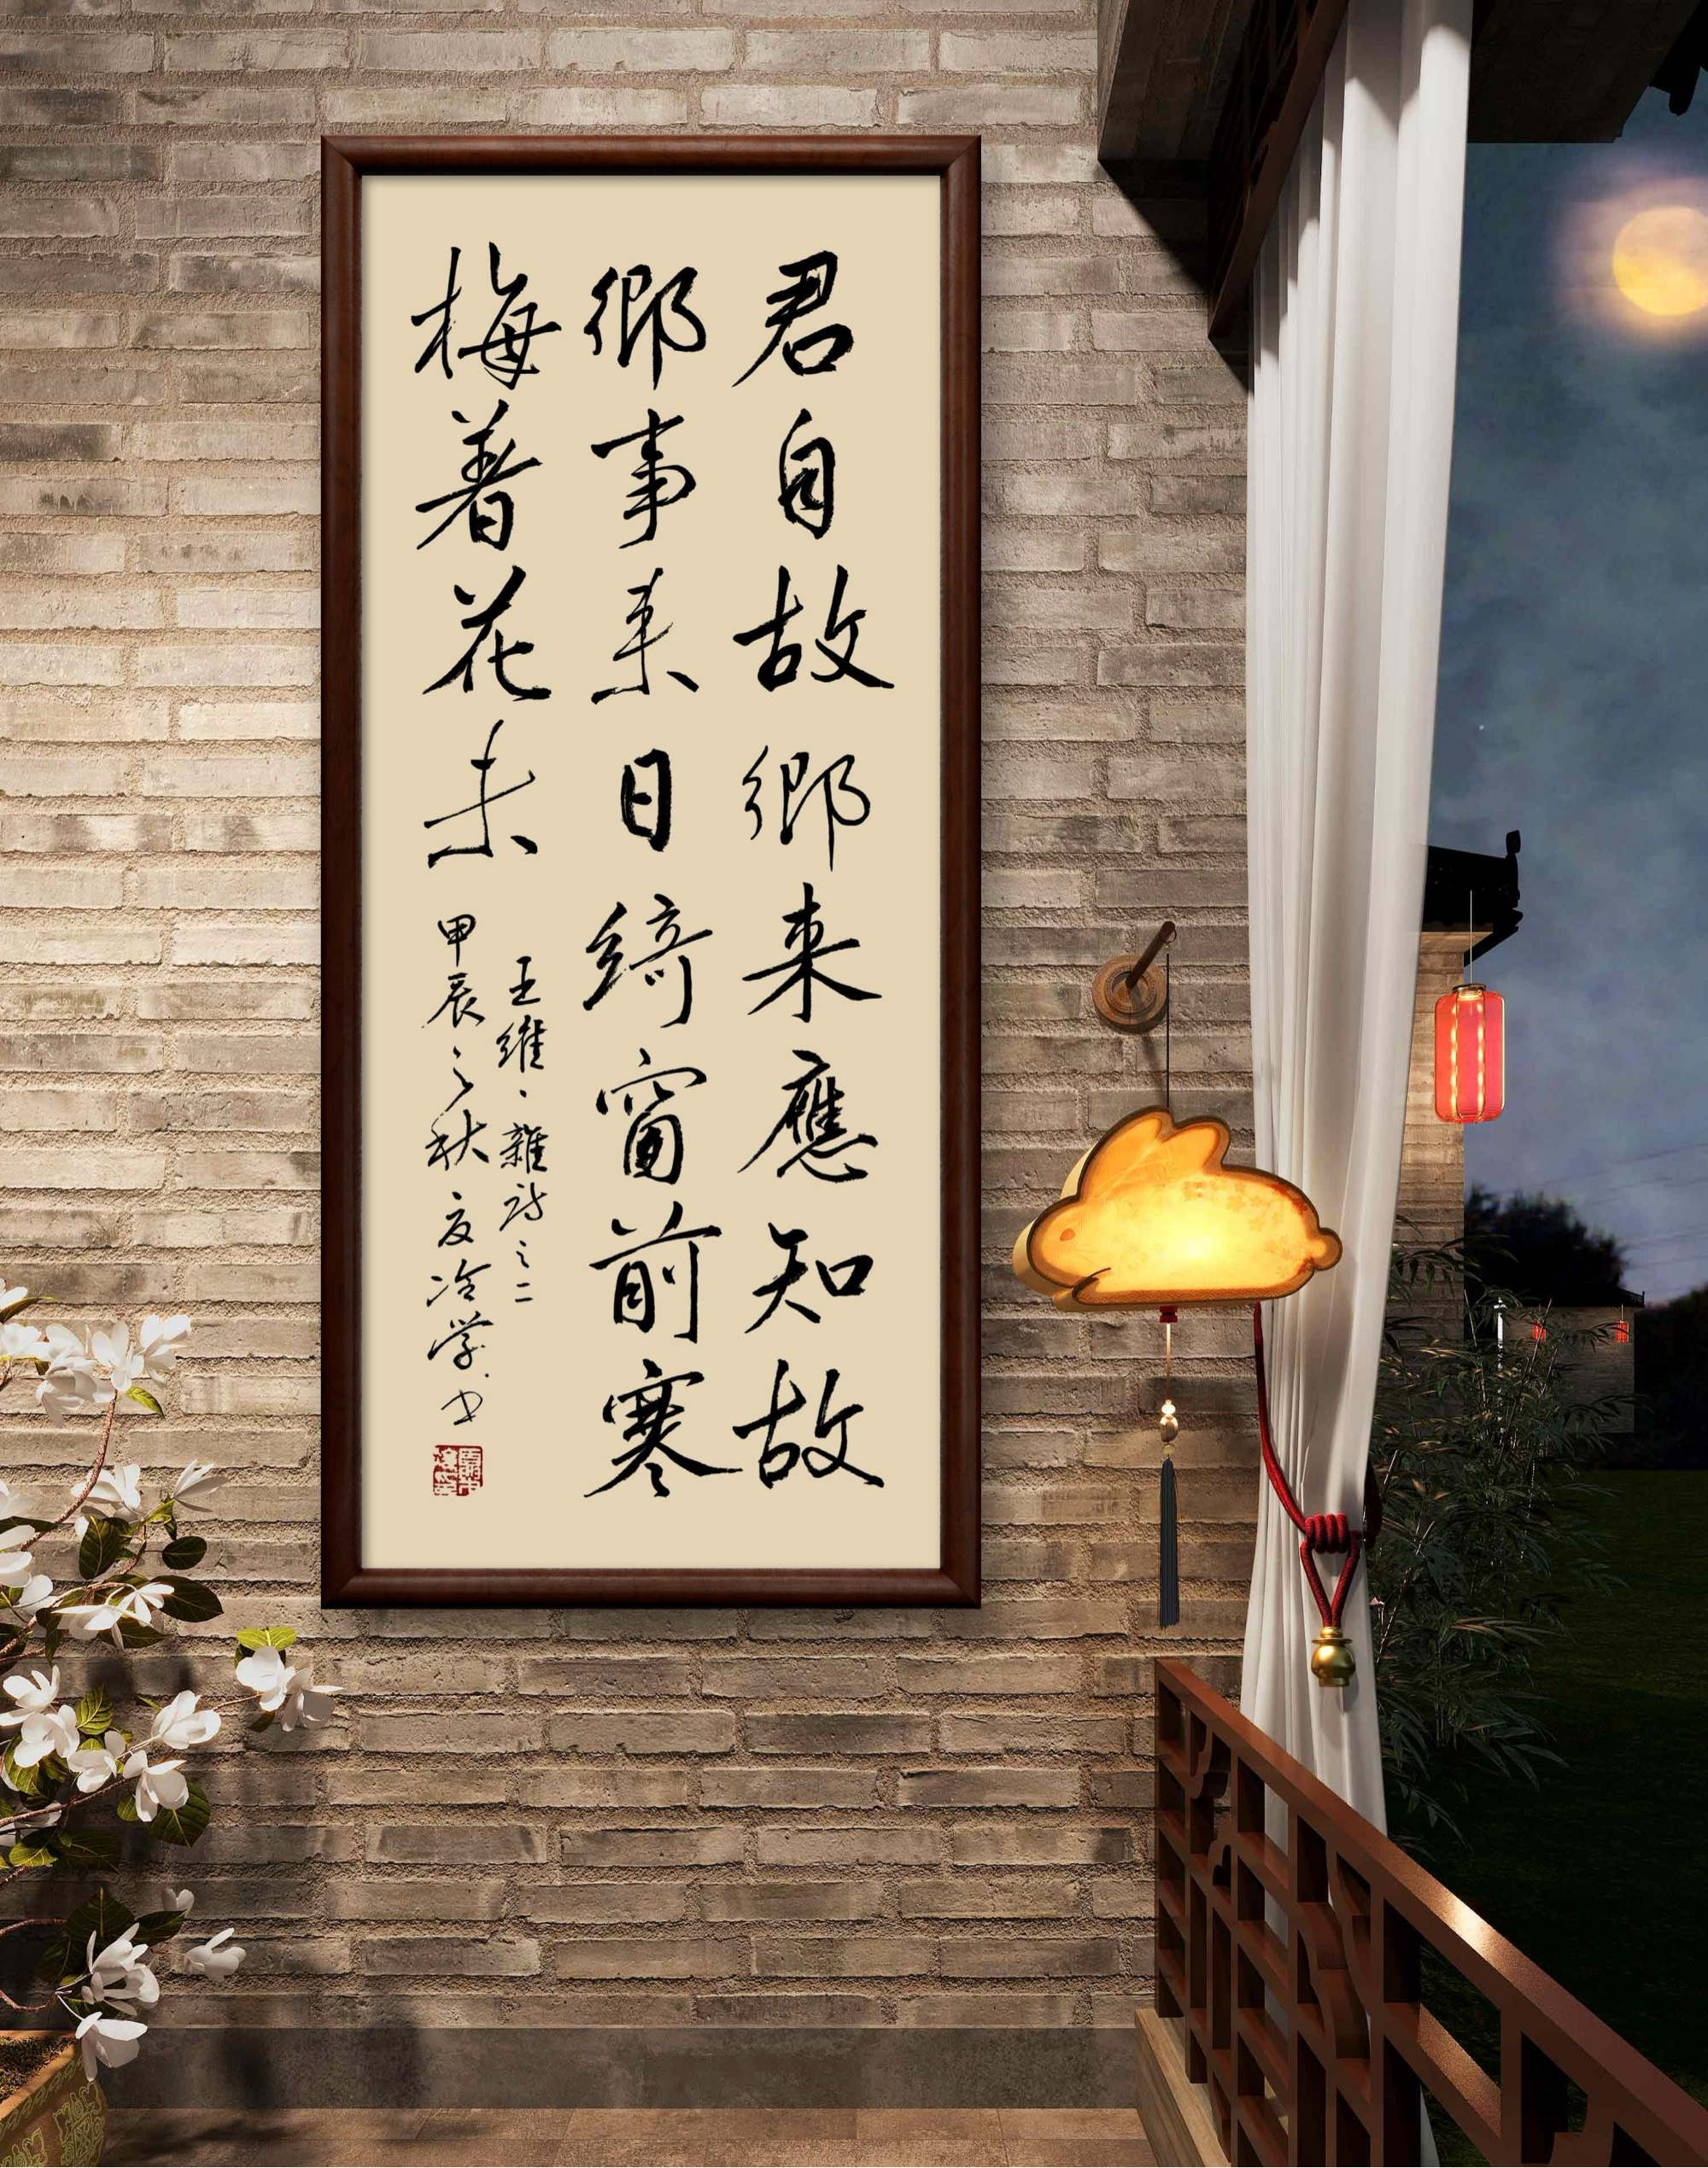 君自故鄉来應知故
鄉事来日綺窗前寒
梅着花未
王維·雜詩之二
甲辰之秋友冷学书